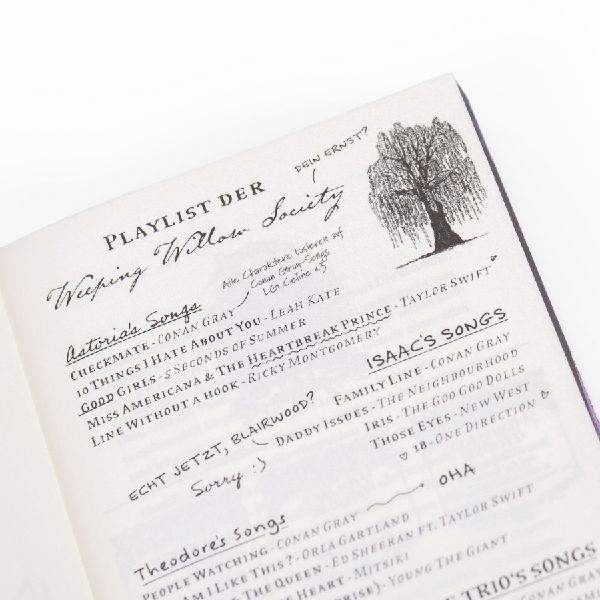 PLAYLIST DER
DEIN ERNST?
Weeping Willow Society
Alle Charaktere basieren auf
Conan Gray-Songs
LG! Celine <3
Astoria's Songs
CHECKMATE - CONAN GRAY
10 THINGS I HATE ABOUT YOU - LEAH KATE
GOOD GIRLS - 5 SECONDS OF SUMMER
MISS AMERICANA & THE HEARTBREAK PRINCE - TAYLOR SWIFT
LINE WITHOUT A HOOK - RICKY MONTGOMERY
ISAAC'S SONGS
FAMILY LINE - CONAN GRAY
DADDY ISSUES - THE NEIGHBOURHOOD
IRIS - THE GOO GOO DOLLS
THOSE EYES - NEW WEST
18 - ONE DIRECTION
ECHT JETZT, BLAIRWOOD?
Sorry :)
OHA
Theodore's Songs
PEOPLE WATCHING - CONAN GRAY
AM I LIKE THIS? - ORLA GARTLAND
THE QUEEN - ED SHEERAN FT. TAYLOR SWIFT
HEART - MITSKI
YOUNG THE GIANT
TRIO'S SONGS